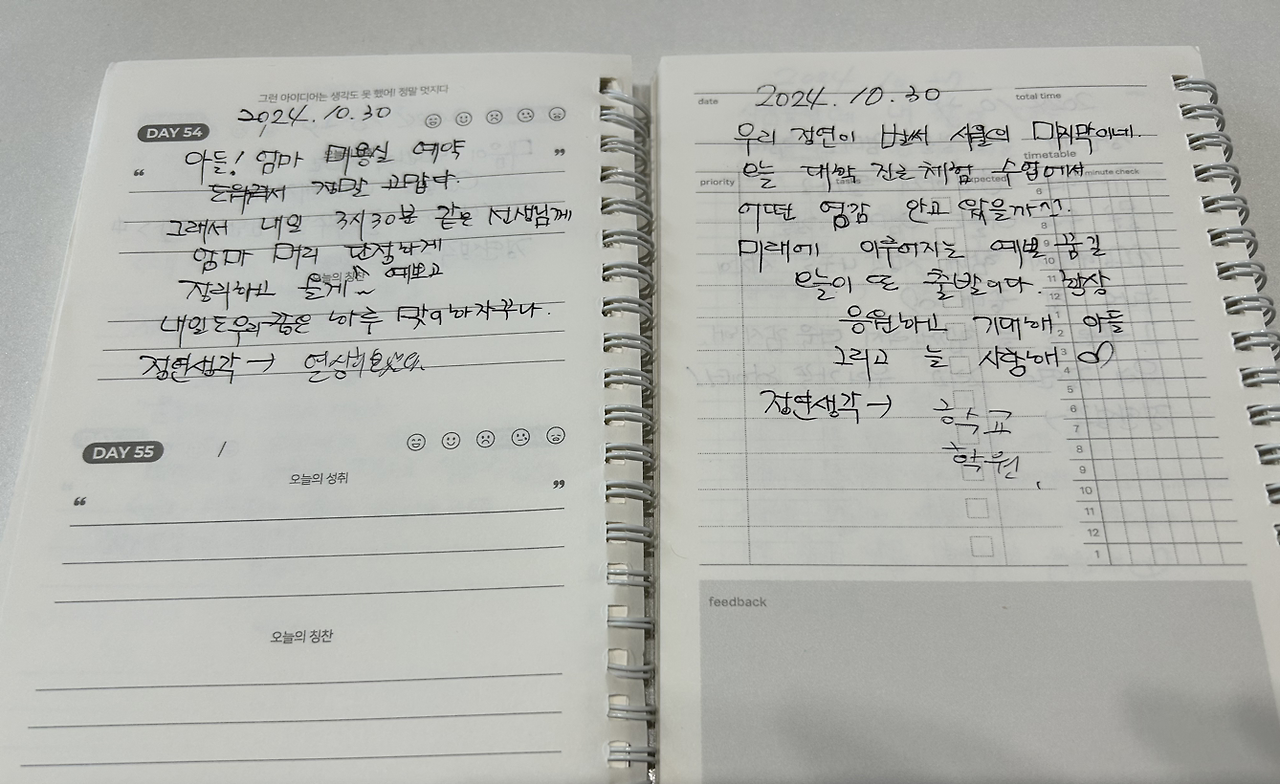 그런 아이디어는 생각도 못 했어! 정말 멋지다
DAY 54
2024.10.30
아들! 엄마 미용실 예약
도와줘서 정말 고맙다.
그래서 내일 3시30분 같은 선생님께
엄마 머리 단정하게
예쁘고
잘하고 올게~
내일도 우리 좋은 하루 맞이하자꾸나.
정연생각→
DAY 55 /
오늘의 성취
“ ”
오늘의 칭찬
date 2024.10.30 total time
우리 정연이 벌써 시월의 마지막이네.
timetable
오늘 대학 진로체험 수업에서
priority tasks expected minute check
어떤 영감 안고 왔을까?
미래에 이루어지는 예쁜 꿈길
오늘이 또 출발이다. 항상
응원하고 기대해 아들
그리고 늘 사랑해
정연생각→ 학교
학원
6
8
9
10
11
12
1
2
3
4
5
6
7
8
9
10
11
12
1
feedback